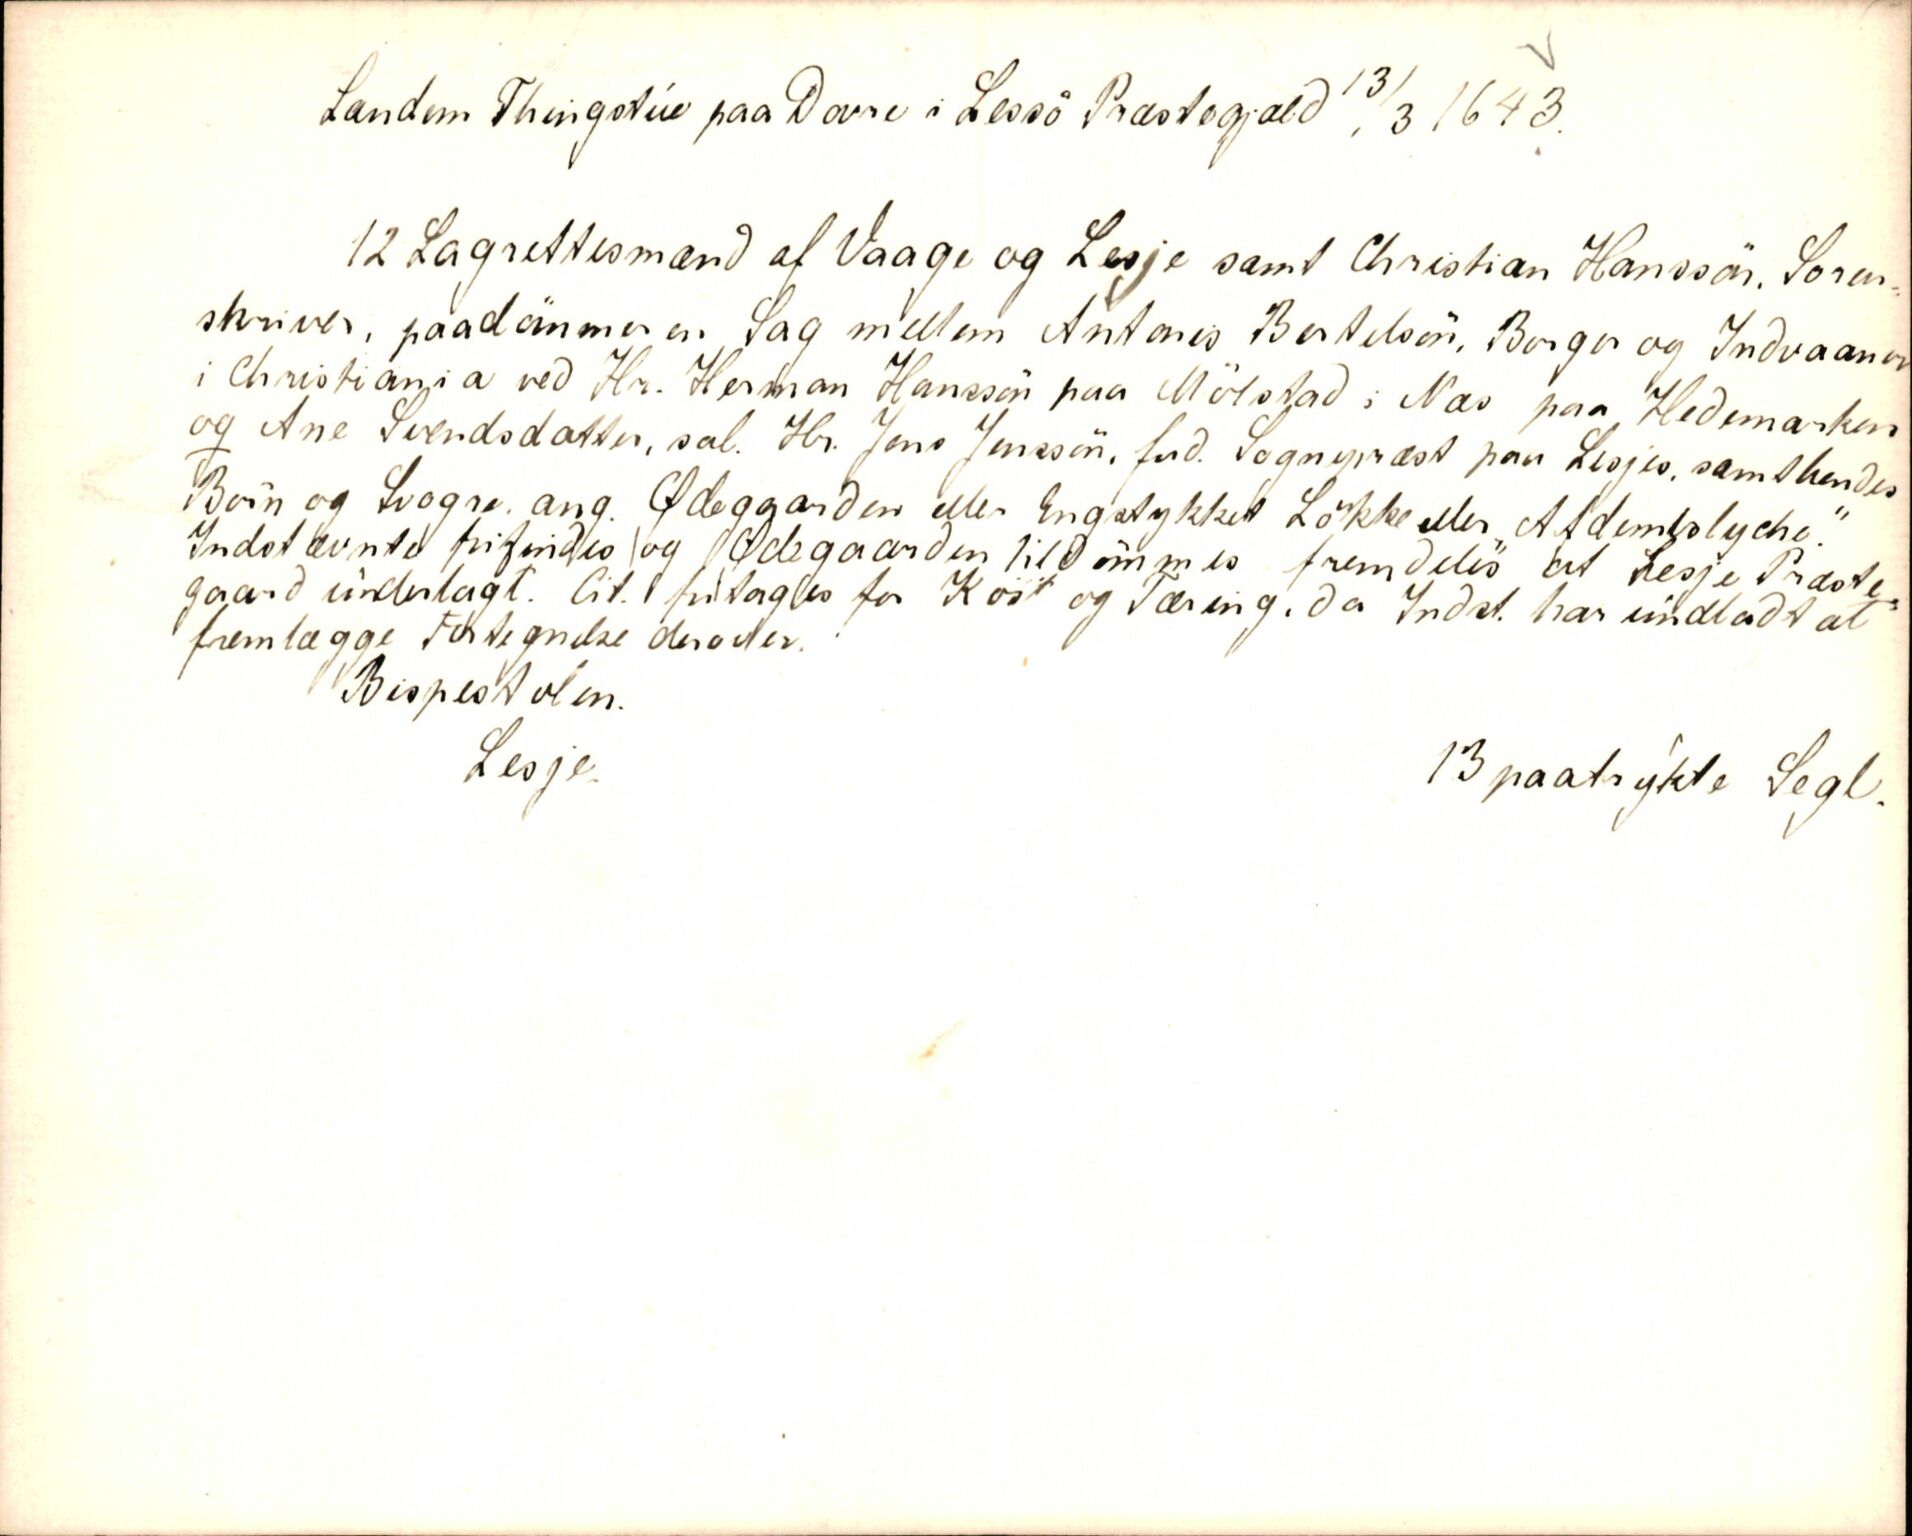 Landem Thingstúe paa Dovre i Lessö Præstegjæld 13/3 1643.
12 Lagrettesmænd af Vaage og Lesje samt Christian Hanssön, Soren-
skriver, paadömmer en Sag mellem Antonis Bertelsön, Borger og Indvaaner
i Christiania ved Hr. Herman Hanssön paa Mölstad i Næs paa Hedemarken
og Ane Svendsdatter, sal. Hr. Jens Jenssön, fud. Sognepræst paa Lesjes, samt hendes
Börn og Svogre. ang. Ødegaarden eller Engstykket Lökke eller „Afdembslyche."
Indstævnte frifindes og Ødegaarden tildömmes fremdeles at Lesje Præste-
gaard únderlagt. Cit. fritages for Kost og Tæring, da Indst. har úndladt at
fremlægge Fortegnelse derover.
Bispestolen.
Lesje.
13 paatrykte Segl.